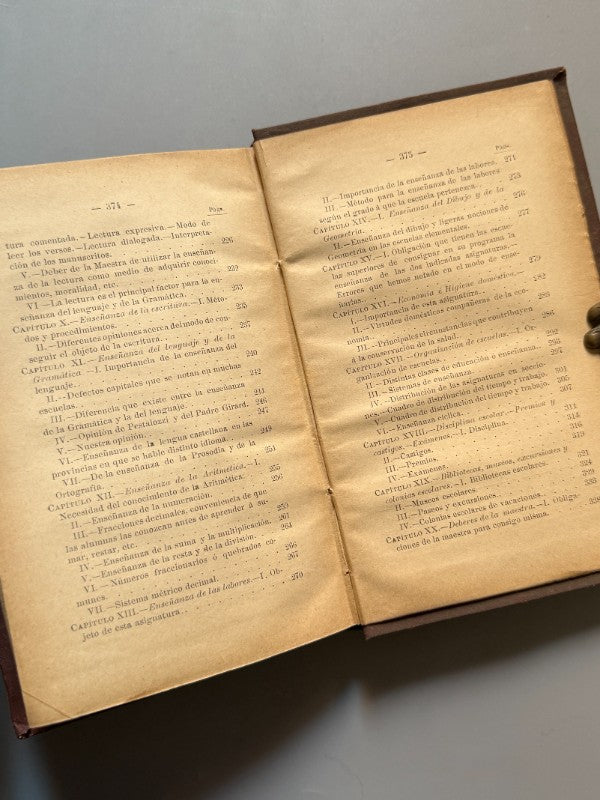 — 374 —
Págs.
tura comentada.—Lectura expresiva.—Modo de
leer los versos.—Lectura dialogada.—Interpreta-
ción de los manuscritos. 226
V.—Deber de la Maestra de utilizar la enseñan-
za de la lectura como medio de adquirir conoci-
mientos, moralidad, etc. 232
VI.—La lectura es el principal factor para la en-
señanza del lenguaje y de la Gramática. 233
CAPÍTULO X.—Enseñanza de la escritura.—I. Méto-
dos y procedimientos. 235
II.—Diferentes opiniones acerca del modo de con-
seguir el objeto de la escritura. 237
CAPÍTULO XI.—Enseñanza del lenguaje y de la
Gramática.—I. Importancia de la enseñanza del
lenguaje. 240
II.—Defectos capitales que se notan en muchas
escuelas. 242
III.—Diferencia que existe entre la enseñanza
de la Gramática y la del lenguaje. 244
IV.—Opinión de Pestalozzi y del Padre Girard. 246
V.—Nuestra opinión. 247
VI.—Enseñanza de la lengua castellana en las
provincias en que se hable distinto idioma. 249
VII.—De la enseñanza de la Prosodia y de la
Ortografía. 251
CAPÍTULO XII.—Enseñanza de la Aritmética.—I.
Necesidad del conocimiento de la Aritmética. 256
II.—Enseñanza de la numeración.
III.—Fracciones decimales, conveniencia de que
las alumnas las conozcan antes de aprender á su-
mar, restar, etc. 259
IV.—Enseñanza de la suma y la multiplicación. 261
V.—Enseñanza de la resta y de la división. 264
VI.—Números fraccionarios ó quebrados co-
munes. 266
VII.—Sistema métrico decimal. 267
CAPÍTULO XIII.—Enseñanza de las labores.—I. Ob-
jeto de esta asignatura. 270
— 375 —
Págs.
II.—Importancia de la enseñanza de las labores. 271
III.—Método para la enseñanza de las labores
según el grado á que la escuela pertenezca. 273
CAPÍTULO XIV.—I. Enseñanza del Dibujo y de la
Geometría. 276
II.—Enseñanza del dibujo y ligeras nociones de
Geometría en las escuelas elementales. 277
CAPÍTULO XV.—I. Obligación que tienen las escue-
las superiores de consignar en su programa la
enseñanza de las dos indicadas asignaturas.—
Errores que hemos notado en el modo de ense-
ñarlas. 279
CAPÍTULO XVI.—Economía é Higiene doméstica.—
I. Importancia de esta asignatura. 282
II.—Virtudes domésticas compañeras de la eco-
nomía. 285
III.—Principales circunstancias que contribuyen
á la conservación de la salud. 288
CAPÍTULO XVII.—Organización de escuelas.—I. Or-
ganización de escuelas. 292
II.—Distintas clases de educación ó enseñanza. 295
III.—Sistemas de enseñanza. 297
IV.—Distribución de las asignaturas en seccio-
nes.—Cuadro de distribución del tiempo y trabajo. 301
V.—Cuadro de distribución del tiempo y trabajo. 305
VI.—Enseñanza cíclica.
CAPÍTULO XVIII.—Disciplina escolar.—Premios y
castigos.—Exámenes.—I. Disciplina. 311
II.—Castigos. 314
III.—Premios. 316
IV.—Exámenes. 319
CAPÍTULO XIX.—Bibliotecas, museos, excursiones y
colonias escolares.—I. Bibliotecas escolares. 321
II.—Museos escolares. 324
III.—Paseos y excursiones.
IV.—Colonias escolares de vacaciones.
CAPÍTULO XX.—Deberes de la maestra.—I. Obliga-
ciones de la maestra para consigo misma.